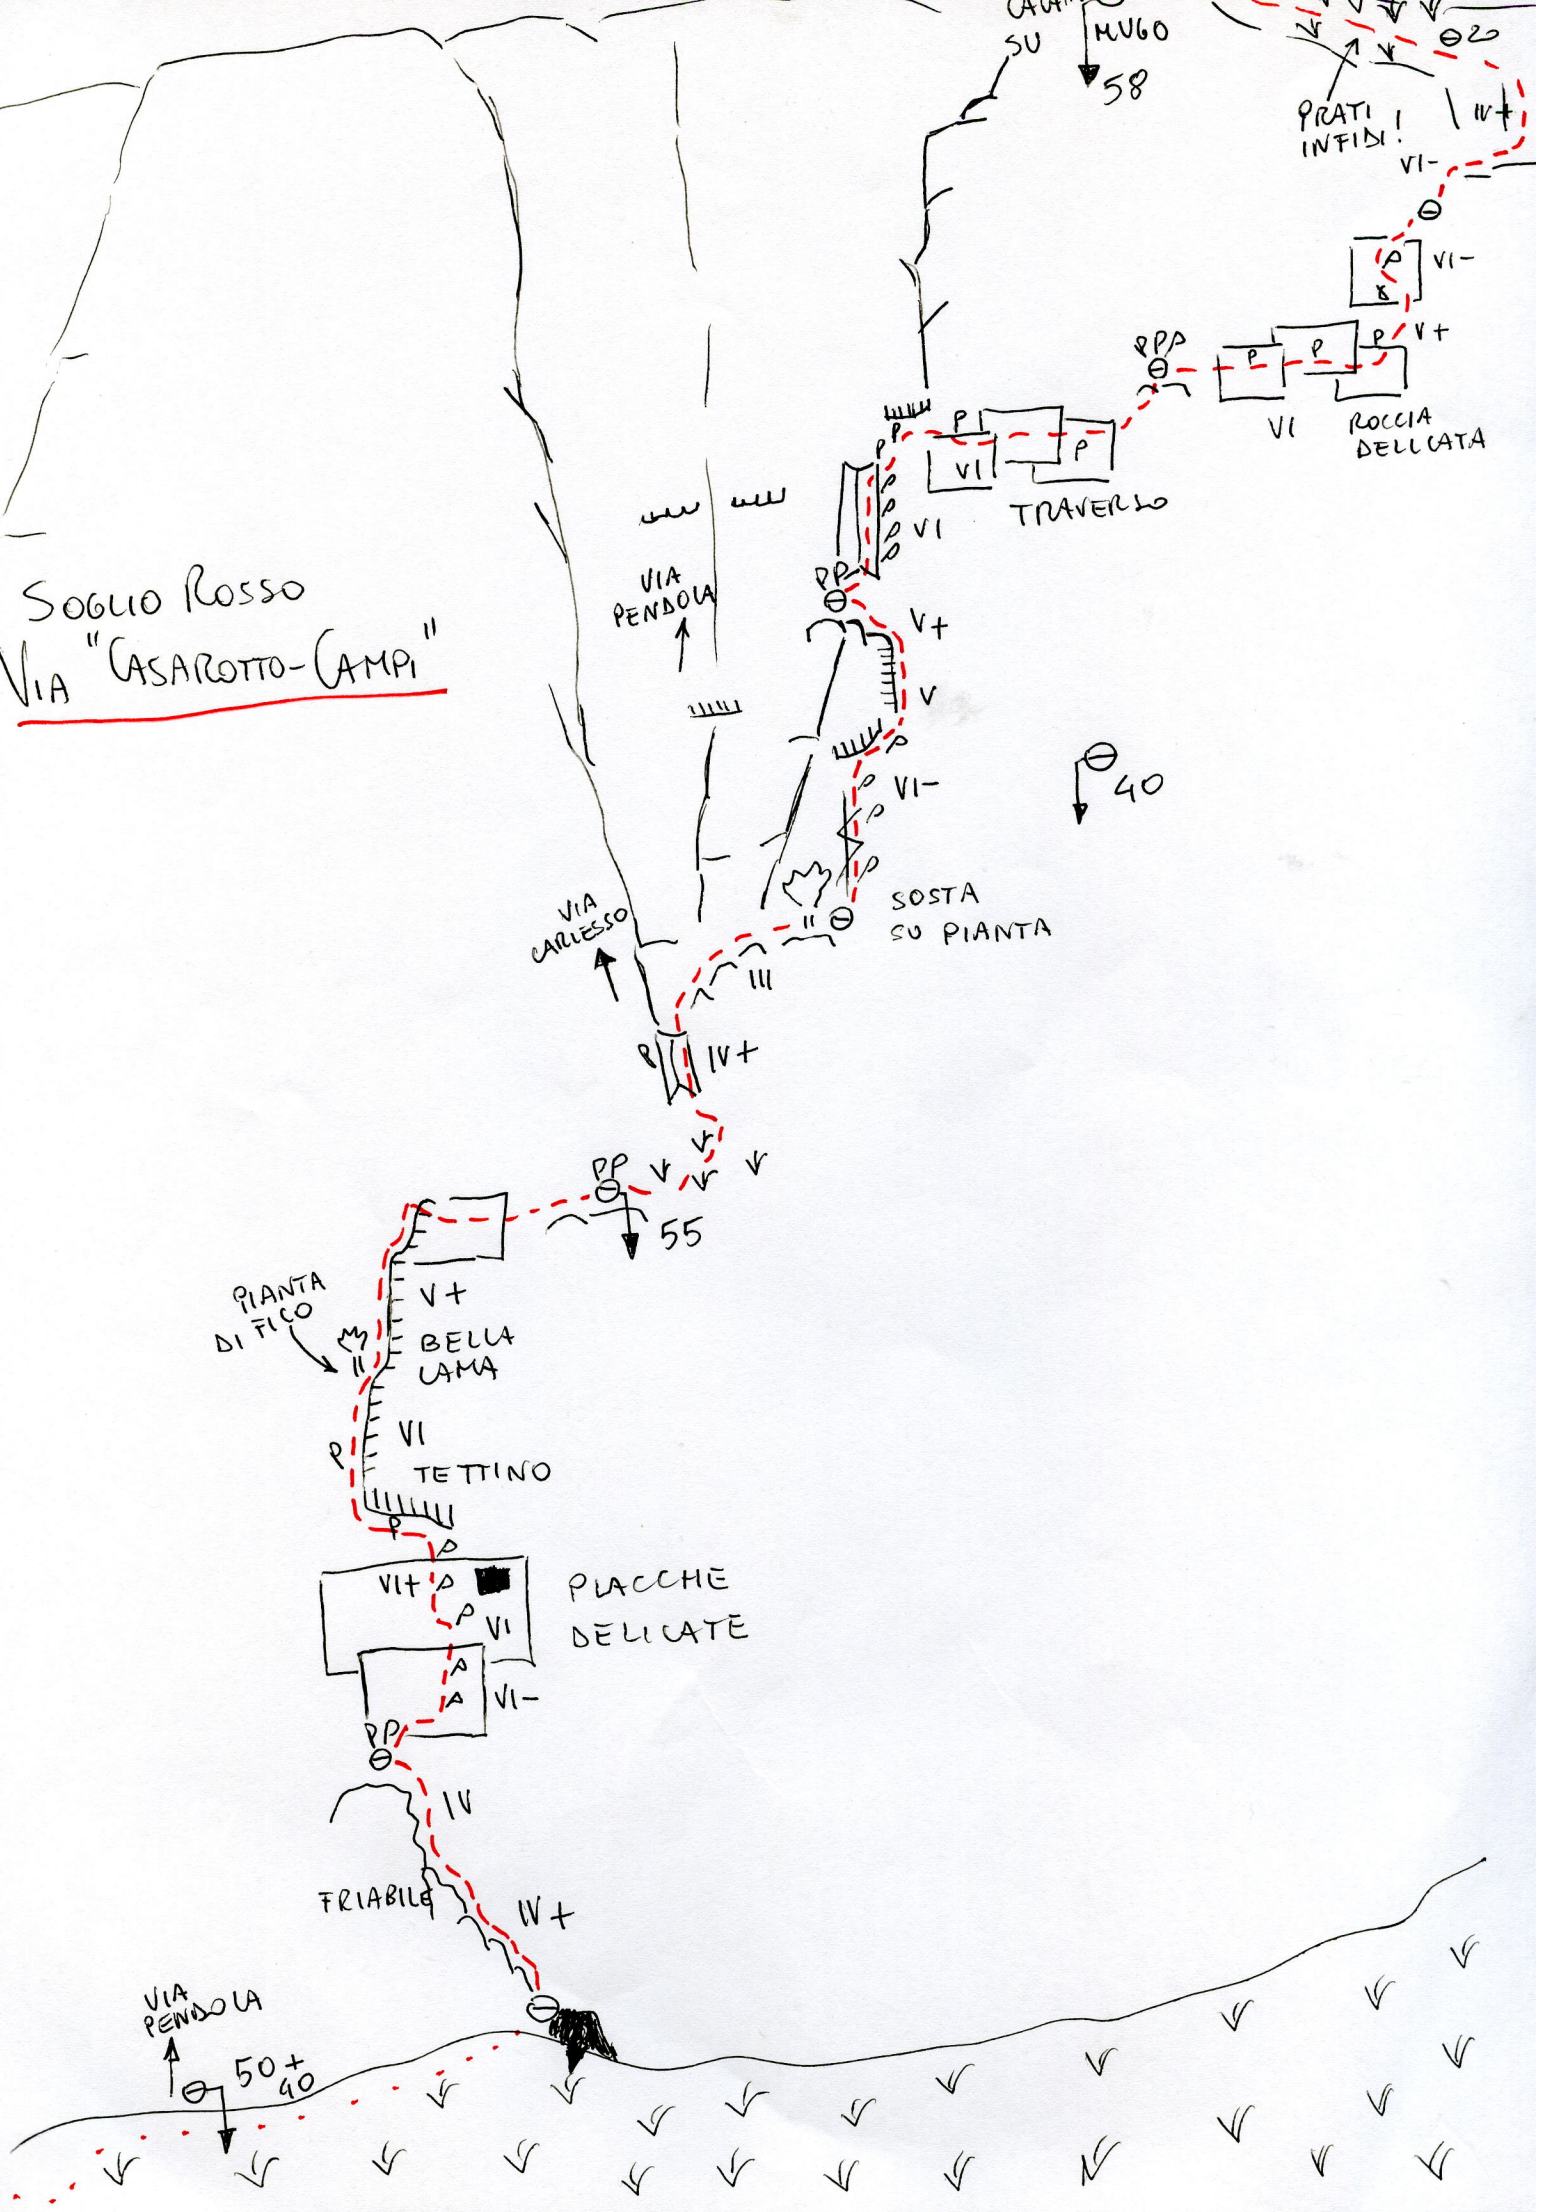 SU
MUGO
58
20
PRATI
INFIDI!
IV+
VI-
P
VI-
V+
PPP
P
P
P
VI
ROCCIA
DELICATA
P
P
P
VI
P
TRAVERSO
P
P
P
P
VI
PP
VIA
PENDOLA
SOGLIO ROSSO
VIA "CASAROTTO-CAMPI"
V+
V
P
P
VI-
P
P
40
SOSTA
SU PIANTA
VIA
CARLESSO
III
P
IV+
PP
55
PIANTA
DI FICO
V+
BELLA
LAMA
P
VI
TETTINO
P
P
VI+
P
P
VI
PLACCHE
DELICATE
P
P
VI-
PP
IV
FRIABILE
IV+
VIA
PENDOLA
50+
40